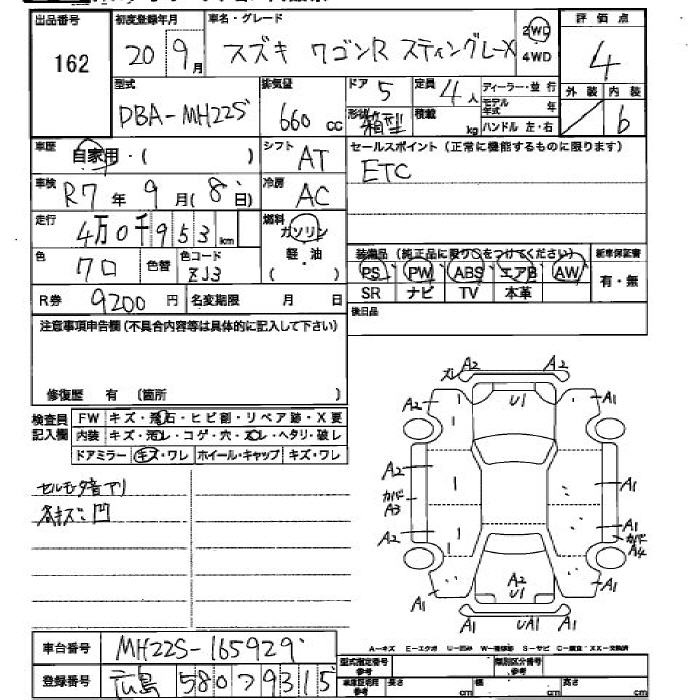 出品番号 初度登録年月 車名・グレード 評価点
162 20 9月 スズキ ワゴンR スティングレーX 2WD 4WD 4
型式 排気量 ドア 5 定員 4人 ディーラー・並行 外装 内装
DBA-MH22S 660cc 形状 箱型 積載 kg モデル年式 年 ハンドル 左・右 6
車歴 自家用・( ) シフト AT セールスポイント (正常に機能するものに限ります)
ETC
車検 R7年9月(8日) 冷房 AC
走行 4万0千953km 燃料 ガソリン
軽・油
( )
色 クロ 色替 色コード ZJ3
装備品 (純正品に限り○をつけてください) 新車保証書
PS PW ABS エアB AW 有・無
SR ナビ TV 本革
R券 9200円 名変期限 月 日 後日品
注意事項申告欄(不具合内容等は具体的に記入して下さい)
修復歴 有 (箇所 )
検査員記入欄 FW キズ・飛石・ヒビ割・リペア跡・X要
内装 キズ・汚レ・コゲ・穴・スレ・ヘタリ・破レ
ドアミラー キズ・ワレ ホイール・キャップ キズ・ワレ
セルモータ音アリ
各キズ凹
A2 A2
ガレ U1
A2 A1
A2 A1
カバー A3
A2 A1
カバー A4
A2 U1
A1 A1
A1 UA1 A1
A-キズ E-エクボ U-凹み W-補修跡 S-サビ C-腐食 XX-交換済
車台番号 MH22S-165929
登録番号 広島 580 ワ 9315
型式指定番号 参考 類別区分番号 参考
車庫証明用 参考 長さ cm 幅 cm 高さ cm